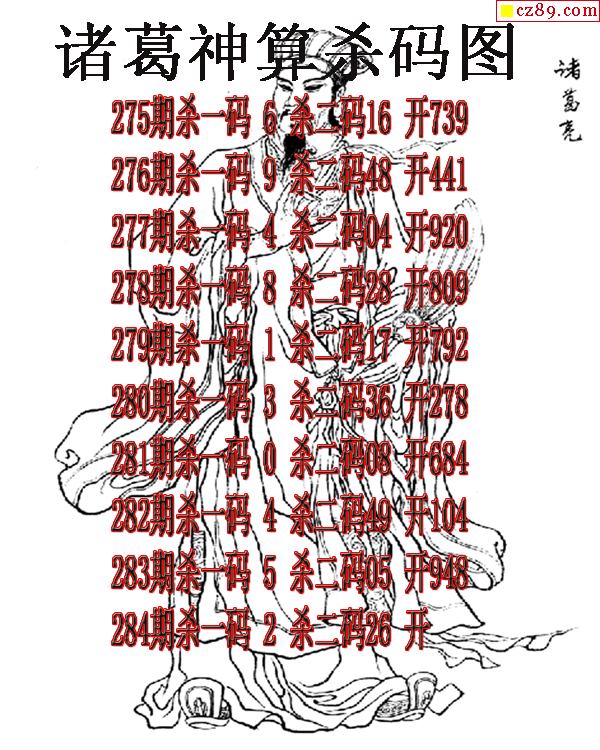 cz89.com
诸葛神算杀码图
诸葛亮
275期杀一码 6 杀二码16 开739
276期杀一码 9 杀二码48 开441
277期杀一码 4 杀二码04 开920
278期杀一码 8 杀二码28 开809
279期杀一码 1 杀二码17 开792
280期杀一码 3 杀二码36 开278
281期杀一码 0 杀二码08 开684
282期杀一码 4 杀二码49 开104
283期杀一码 5 杀二码05 开948
284期杀一码 2 杀二码26 开